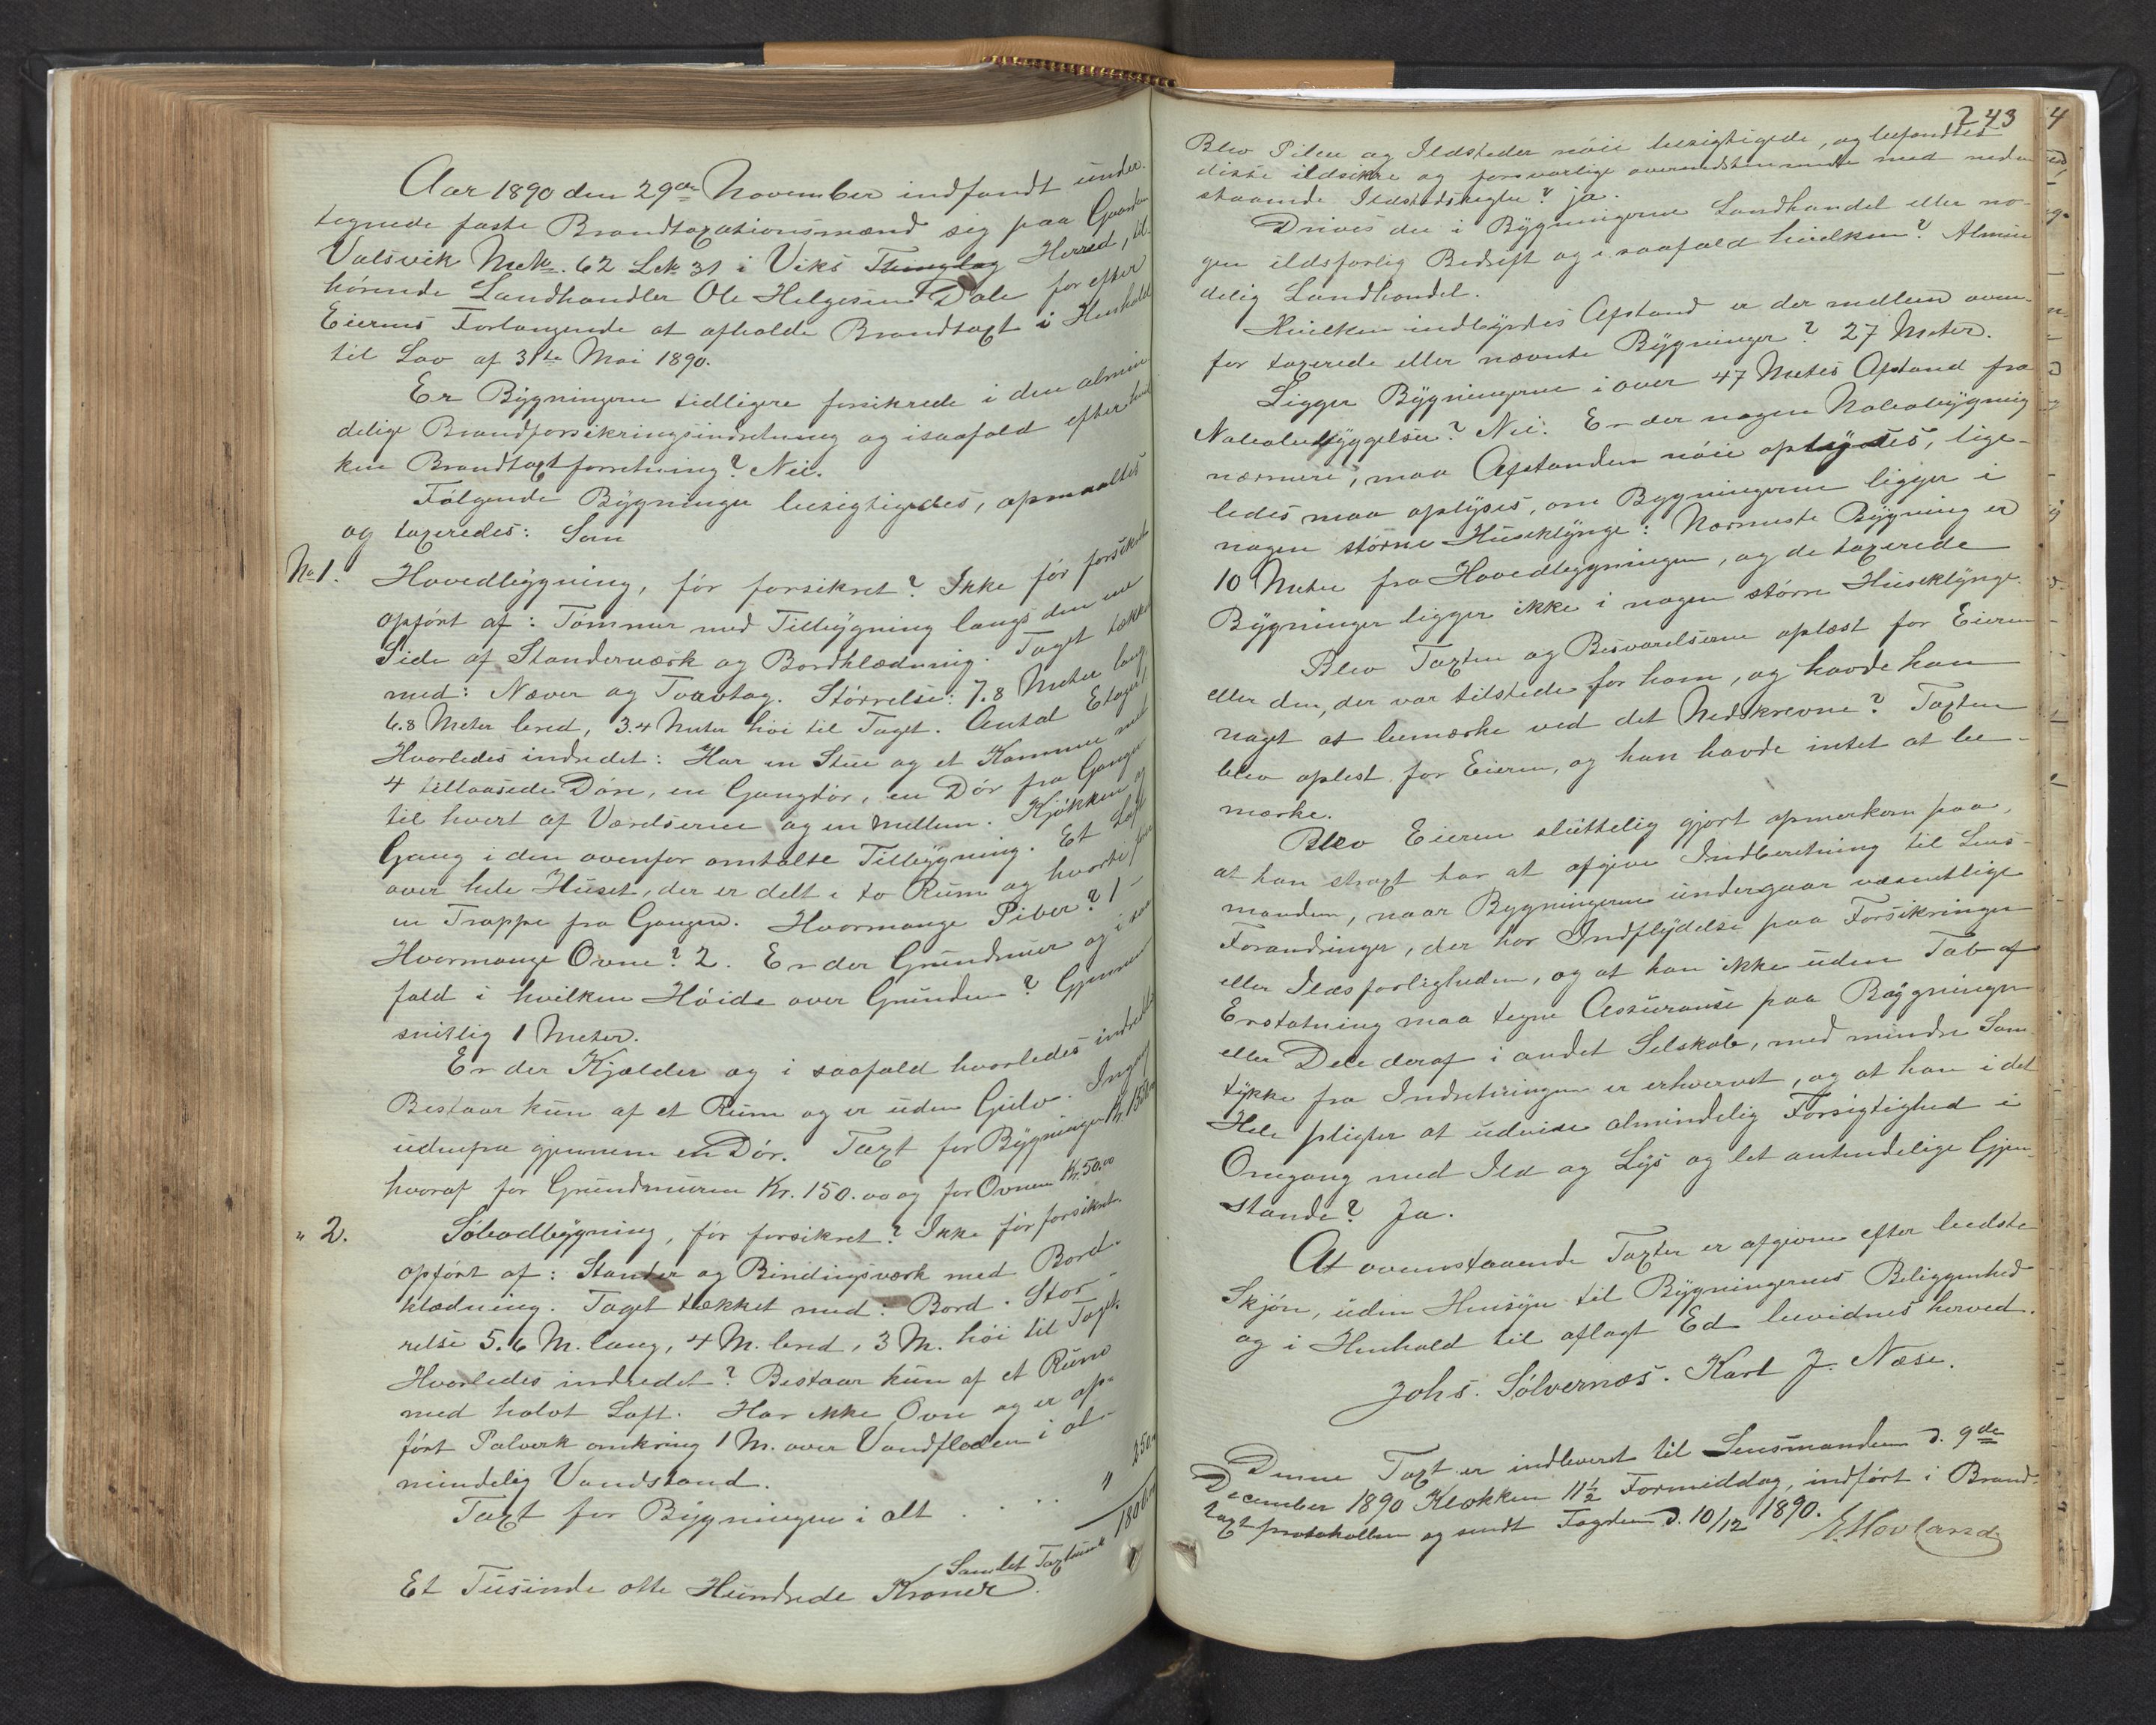 Aar 1890 den 29de November indfandt under-
tegnede faste Brandtaxationsmænd sig paa Gaarden
Valsvik Mtk. 62 Lnk 31 i Viks Thinglag Herred, til-
hørende Landhandler Ole Helgesen Dale for efter
Eierens Forlangende at afholde Brandtaxt i Henhold
til Lov af 31te Mai 1890.
Er Bygningerne tidligere forsikrede i den almin-
delige Brandforsikringsindretning og isaafald efter hvil-
ken Brandtaxtforretning? Nei.
Følgende Bygninger besigtigedes, opmaaltes
og taxeredes: Som
No 1. Hovedbygning, før forsikret? Ikke før forsikret
opført af: Tømmer med Tilbygning langs den ene
Side af Standerværk og Bordklædning. Taget tækket
med: Næver og Tværtag. Størrelse: 7.8 Meter lang,
6.8 Meter bred, 3.4 Meter høi til Taget. Antal Etager 1
Hvorledes indredet: Har en Stue og et Kammer med
4 tillaasede Døre, en Gangdør, en Dør fra Gangen
til hvert af Værelserne og en mellem. Kjøkken og
Gang i den ovenfor omtalte Tilbygning. Et Loft
over hele Huset, der er delt i to Rum og hvortil fører
en Trappe fra Gangen. Hvormange Piber? 1 -
Hvormange Ovne? 2. Er der Grundmur og i saa
fald i hvilken Høide over Grunden? Gjennem-
snitlig 1 Meter.
Er der Kjælder og i saafald hvorledes indredet
Bestaar kun af et Rum og er uden Gulv. Indgang
udenfra gjennem en Dør. Taxt for Bygningen Kr. 1550.00
hvoraf for Grundmuren Kr. 150.00 og for Ovnene Kr. 50.00
" 2. Søbodbygning, før forsikret? Ikke før forsikret.
opført af: Stander og Bindingsværk med Bord-
klædning. Taget tækket med: Bord. Stør-
relse 5.6 M. lang, 4 M. bred, 3 M. høi til Taget.
Hvorledes indredet? Bestaar kun af et Rum
med halvt Loft. Har ikke Ovn og er op-
ført Palverk omkring 1 M. over Vandfladen i al-
mindelig Vandstand.
Taxt for Bygningen i alt . . . . " 250.00
Samlet Taxtsum 1800.00
Et Tusinde otte Hundrede Kroner.
243
Blev Piber og Ildsteder nøie besigtigede, og befandtes
disse ildsikre og forsvarlige overensstemmende med neden-
staaende Ildstedsregler? ja.
Drives der i Bygningerne Landhandel eller no-
gen ildsfarlig Bedrift og i saafald hvilken? Almin-
delig Landhandel.
Hvilken indbyrdes Afstand er der mellem oven-
for taxerede eller nævnte Bygninger? 27 Meter.
Ligger Bygningerne i over 47 Meters Afstand fra
Nabobebyggelse? Nei. Er der nogen Nabobygning
nærmere, maa Afstanden nøie oplyses, lige-
ledes maa oplyses, om Bygningerne ligger i
nogen større Huseklynge: Nærmeste Bygning er
10 Meter fra Hovedbygningen, og de taxerede
Bygninger ligger ikke i nogen større Huseklynge.
Blev Taxten og Besvarelserne oplæst for Eieren
eller den, der var tilstede for ham, og havde han
noget at bemærke ved det Nedskrevne? Taxten
blev oplest for Eieren, og han havde intet at be-
mærke.
Blev Eieren sluttelig gjort opmerksom paa,
at han straxt har at afgive Indberetning til Lens-
manden, naar Bygningerne undergaar væsentlige
Forandringer, der har Indflydelse paa Forsikringen
eller Ildsfarligheden, og at han ikke uden Tab af
Erstatning maa tegne Assuranse paa Bygninger
eller Dele deraf i andet Selskab, med mindre Sam-
tykke fra Indretningen er erhvervet, og at han i det
Hele pligter at udvise almindelig Forsigtighed i
Omgang med Ild og Lys og let antendelige Gjen-
stande? Ja.
At ovenstaaende Taxter er afgivne efter bedste
Skjøn, uden Hensyn til Bygningernes Beliggenhed
og i Henhold til aflagt Ed bevidnes herved.
Johs. Sølvernæs. Karl J. Næse.
Denne Taxt er indleveret til Lensmanden d. 9de
December 1890 Klokken 11½ Formiddag, indført i Brand-
taxtprotokollen og sendt Fogden d. 10/12 1890.
E Hovland